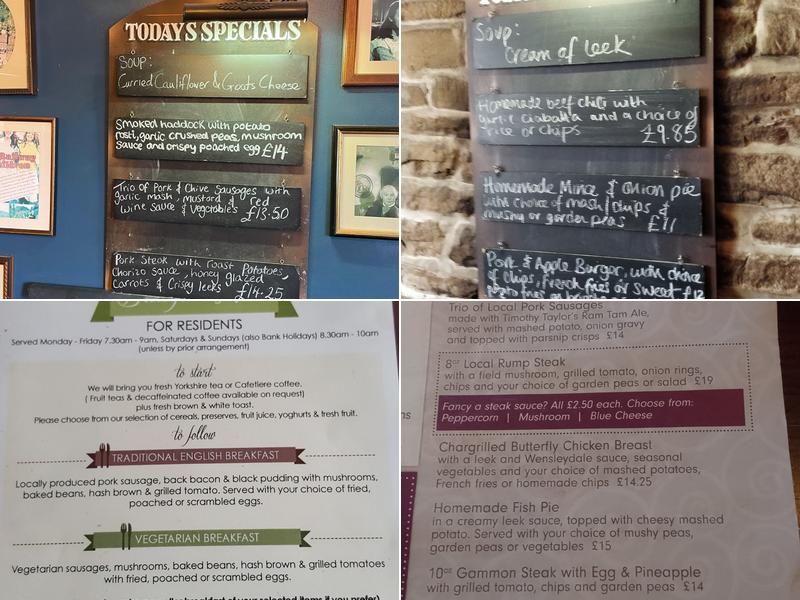 TODAY'S SPECIALS
Soup:
Curried Cauliflower & Goats Cheese
Smoked haddock with potato
rosti, garlic crushed peas, mushroom
sauce and crispy poached egg £14
Trio of Pork & Chive Sausages with
garlic mash, mustard & red
wine Sauce & Vegetables £13.50
Pork Steak with roast Potatoes,
Chorizo Sauce, honey glazed
Carrots & Crispy leeks £14.25
Soup:
Cream of leek
Homemade beef chilli with
garlic ciabatta and a choice of
rice or chips £9.85
Homemade Mince & Onion pie
with choice of mash/chips &
mushy or garden peas £11
Pork & Apple Burger, with choice
of chips, french fries or sweet £12
FOR RESIDENTS
Served Monday - Friday 7.30am - 9am, Saturdays & Sundays (also Bank Holidays) 8.30am - 10am
(unless by prior arrangement)
to start
We will bring you fresh Yorkshire tea or Cafetiere coffee.
( Fruit teas & decaffeinated coffee available on request)
plus fresh brown & white toast.
Please choose from our selection of cereals, preserves, fruit juice, yoghurts & fresh fruit.
to follow
TRADITIONAL ENGLISH BREAKFAST
Locally produced pork sausage, back bacon & black pudding with mushrooms,
baked beans, hash brown & grilled tomato. Served with your choice of fried,
poached or scrambled eggs.
VEGETARIAN BREAKFAST
Vegetarian sausages, mushrooms, baked beans, hash brown & grilled tomatoes
with fried, poached or scrambled eggs.
breakfast of your selected items if you prefer)
Trio of Local Pork Sausages
made with Timothy Taylor's Ram Tam Ale,
served with mashed potato, onion gravy
and topped with parsnip crisps £14
8oz Local Rump Steak
with a field mushroom, grilled tomato, onion rings,
chips and your choice of garden peas or salad £19
Fancy a steak sauce? All £2.50 each. Choose from:
Peppercorn | Mushroom | Blue Cheese
Chargrilled Butterfly Chicken Breast
with a leek and Wensleydale sauce, seasonal
vegetables and your choice of mashed potatoes,
French fries or homemade chips £14.25
Homemade Fish Pie
in a creamy leek sauce, topped with cheesy mashed
potato. Served with your choice of mushy peas,
garden peas or vegetables £15
10oz Gammon Steak with Egg & Pineapple
with grilled tomato, chips and garden peas £14